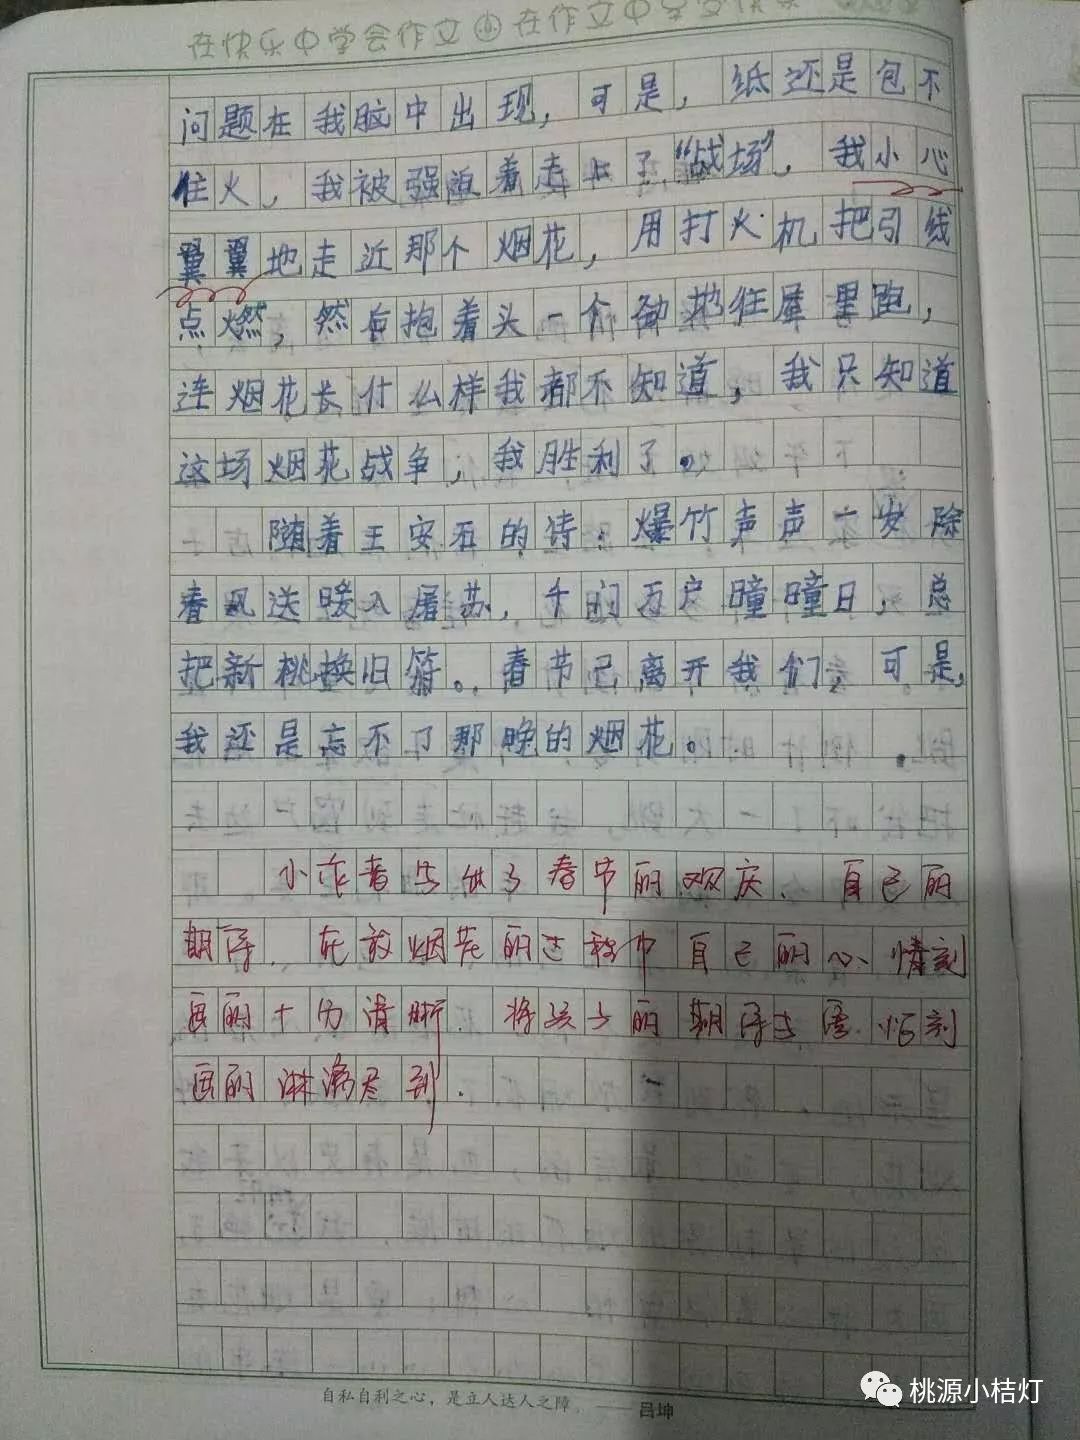 在快乐中学会作文 在作文中享受快乐
问题在我脑中出现，可是，纸还是包不
住火，我被强迫着走上了“战场”，我小心
翼翼地走近那个烟花，用打火机把引线
点燃，然后抱着头一个劲地往屋里跑，
连烟花长什么样我都不知道，我只知道
这场烟花战争，我胜利了。
随着王安石的诗：爆竹声声一岁除
春风送暖入屠苏，千门万户曈曈日，总
把新桃换旧符。春节已离开我们，可是，
我还是忘不了那晚的烟花。
小作者写出了春节的欢庆、自己的
期待、在放烟花的过程中自己的心情刻
画的十分清晰．将孩子的期待与
刻
画的淋漓尽到．
自私自利之心，是立人达人之障。——吕坤
桃源小桔灯